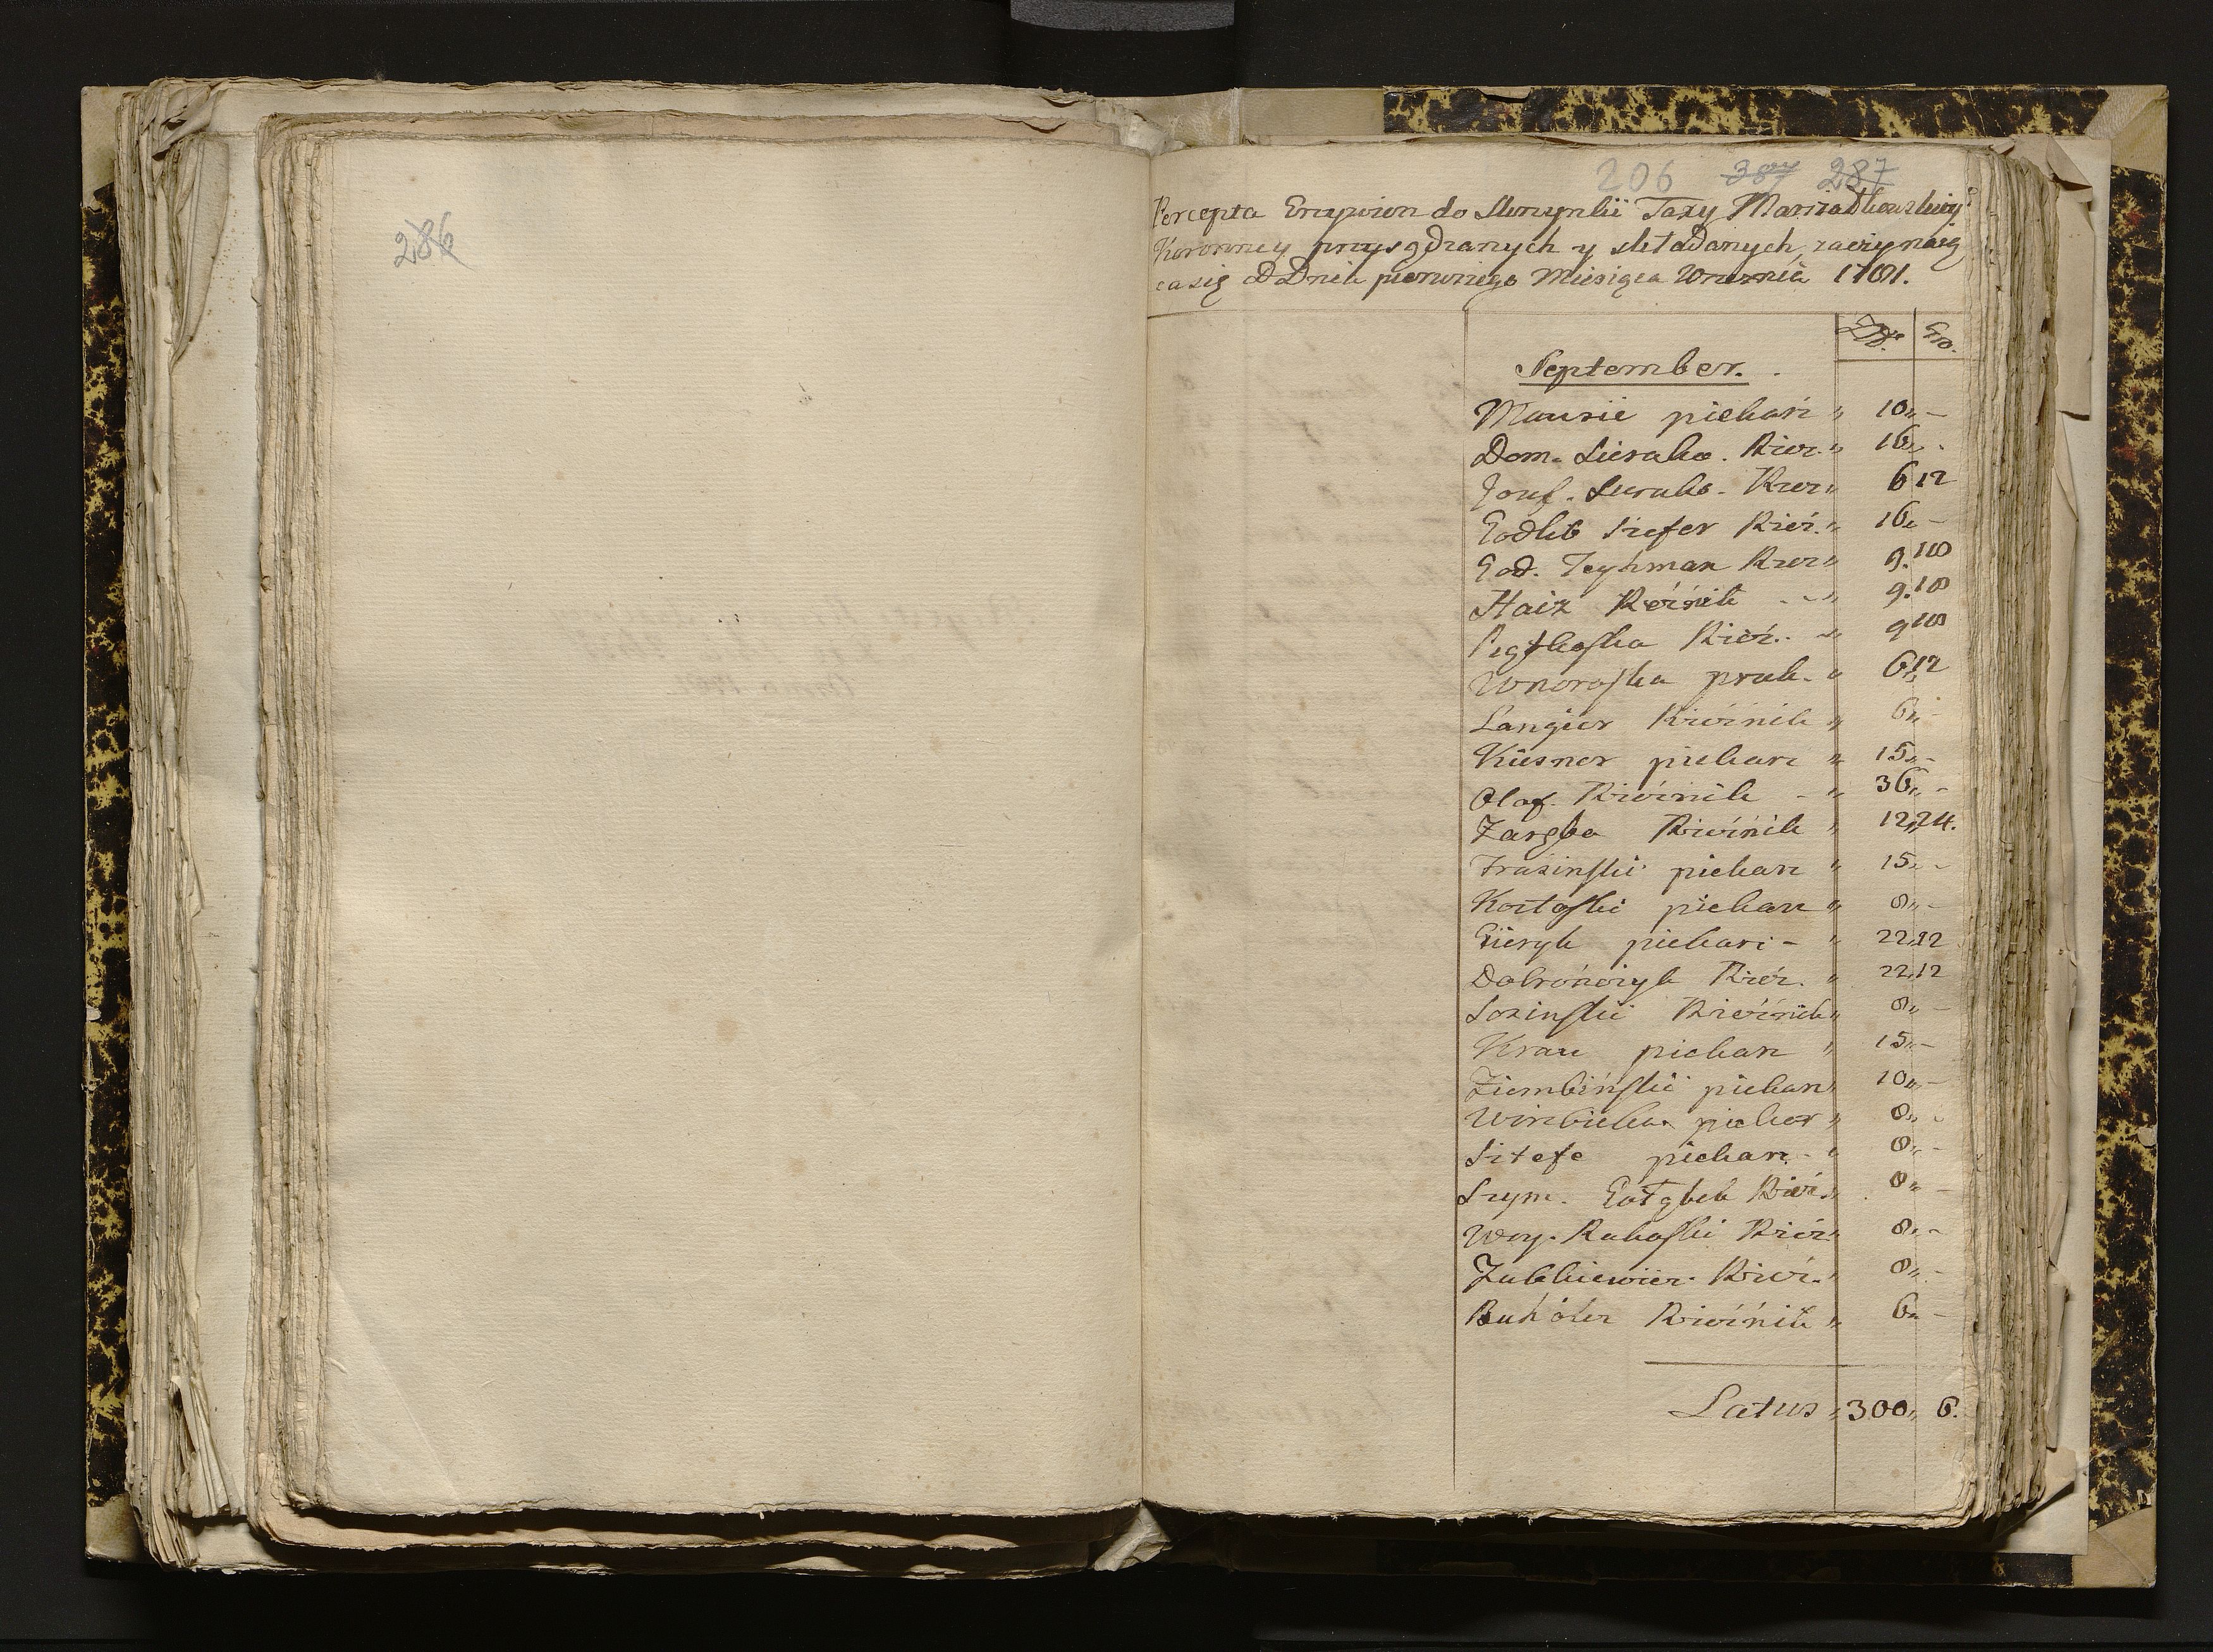 286
206 387 287
Percepta Grzywien do Skrzynki Taxy Marszałkowskiey
Koronney przysądzanych y składanych, zaczynaią
ca się od Dnia pierwszego Miesiąca Wrzesnia 1781.
Zł. Gr.
September.
Mausie piekarz „ 10„ –
Dom. Sieralko. Rzez. „ 16„ -
Jozef. Sieralko. Rzez „ 6 12
Godleb Szefer Rzez. „ 16„ –
God. Teyhman Rzez „ 9. 18
Haiz Rzeźnik - - „ 9. 18
Piątkoska Rzeź. - „ 9 18
Wnoroska przek. „ 6„ 12
Langier Rzeźnik „ 6„ -
Kiesner piekarz „ 15„ -
Olof. Rzeźnik - „ 36„ -
Zaręba Rzeźnik „ 12„ 24.
Trazinski piekarz „ 15„ -
Kortoski piekarz „ 8„ -
Gieryk piekarz - „ 22„ 12
Dobrońozyk Rzeź. „ 22„ 12
Lozinski Rzeźnik „ 8„ -
Krau piekarz „ 15„ -
Ziembiński piekarz „ 10„ -
Wirzbicka piekar „ 8„ -
Sztefe piekarz - „ 8„ -
Szym. Gołąbek Rzeź. „ 8„ -
Woy. Rakoski Rzeź. „ 8„ -
Zubkiewicz Rzeź. „ 8„ -
Buholer Rzeźnik „ 6„ -
Latus „ 300„ 6.